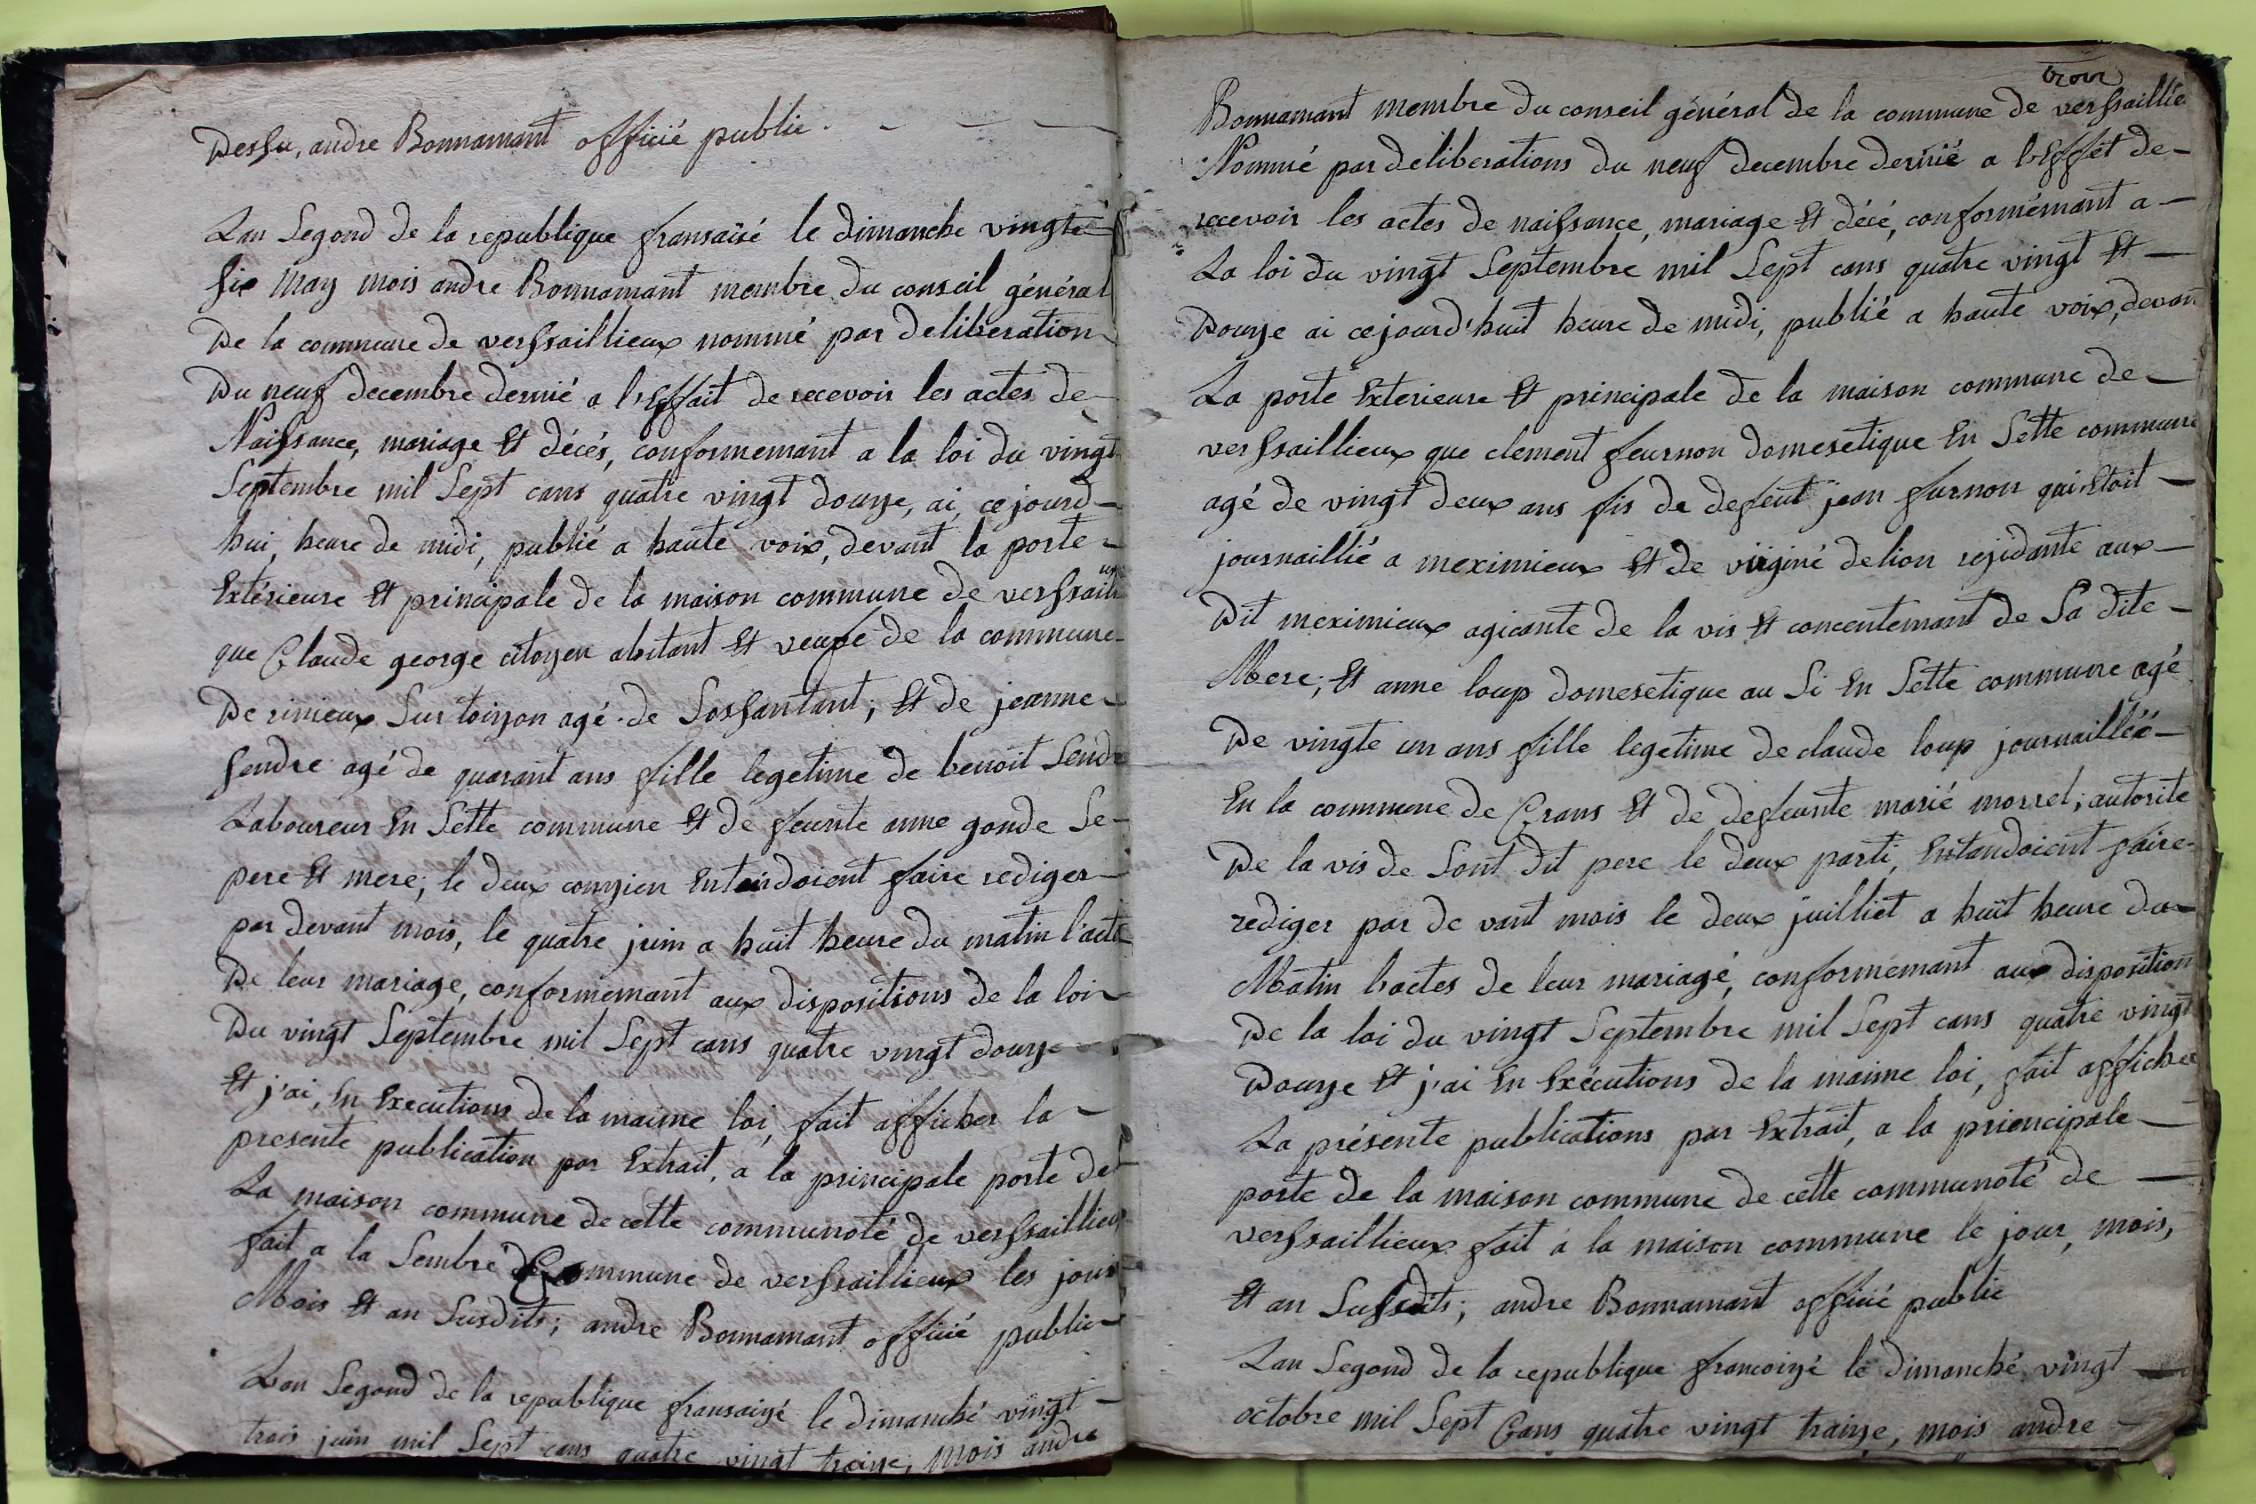 Dessu, andre Bonnamant officié public.
Lan Segond de la republique fransaise le dimanche vingte
six may mois andre Bonnamant membre du conseil général
De la commune de verssaillieux nommé par deliberation
Du neuf decembre dernié a l'Effait de recevoir les actes de
Naissance, mariage Et décés, conformemant a la loi du vingt
Septembre mil Sept cans quatre vingt douze, ai, ce jourd
hui, heure de midi, publié a haute voix, devant la porte
Extérieure Et principale de la maison commune de verssailieux
que Claude george citoyen abitant Et veufe de la commune
De rimeux Sur toizon agé de Sossantant; Et de jeanne
Sendre agé de quarant ans fille legetime de benoit Sendre
Laboureur En Sette commune Et de feunte anne gonde Se
pere Et mere; le deux conzien Entendoient faire rediger
par devant mois, le quatre juin a huit heure du matin l'acte
De leur mariage, conformemant aux dispositions de la loi
Du vingt Septembre mil Sept cans quatre vingt douze
Et j'ai, En Executions de la maime loi, fait afficher la
presente publication par Extrait, a la principale porte de
La maison commune de cette communoté de verssaillieux
fait a la Sembré de Commune de verssaillieux les jour
Mois Et an Susdits; andre Bonnamant officié public
Lan Segond de la republique fransaizé le dimanché vingt
trois juin mil Sept cans quatre vingt traize, mois andre
trois
Bonnamant membre du conseil général de la commune de verssaillie
Nommé par deliberations du neuf decembre dernié a l'Effét de
recevoir les actes de naissance, mariage Et décé, conformémant a
La loi du vingt Septembre mil Sept cans quatre vingt Et
Douze ai ce jourd'huit heure de midi, publié a haute voix, devant
La porte Exterieure Et principale de la maison commune de
verssaillieux que clement feurnon domesetique En Sette commune
agé de vingt deux ans fis de defeut jean furnon qui Etoit
journaillié a meximieux Et de virginé delion rezidante aux
Dit meximieux agicante de la vis Et concentemant de Sa dite
Mere; Et anne loup domesetique au Si En Sette commune agé
De vingte un ans fille legetime de claude loup journailléé
En la commune de Crans Et de defeunte marié morrel; autorite
De la vis de Sont dit pere le deux parti, Entandoient faire
rediger par de vant mois le deux juilliet a huit heure du
Matin l'actes de leur mariagé, conformemant aux disposition
De la loi du vingt Septembre mil Sept cans quatre vingt
Douze Et j'ai En Exécutions de la maime loi, fait afficher
La présente publications par Extrait, a la priencipale
porte de la maison commune de cette communoté de
verssaillieux fait a la maison commune le jour, mois,
Et an Susdits; andre Bonnamant officié public
Lan Segond de la republique francoizé le dimanché vingt
octobre mil Sept Cans quatre vingt traize, mois andre